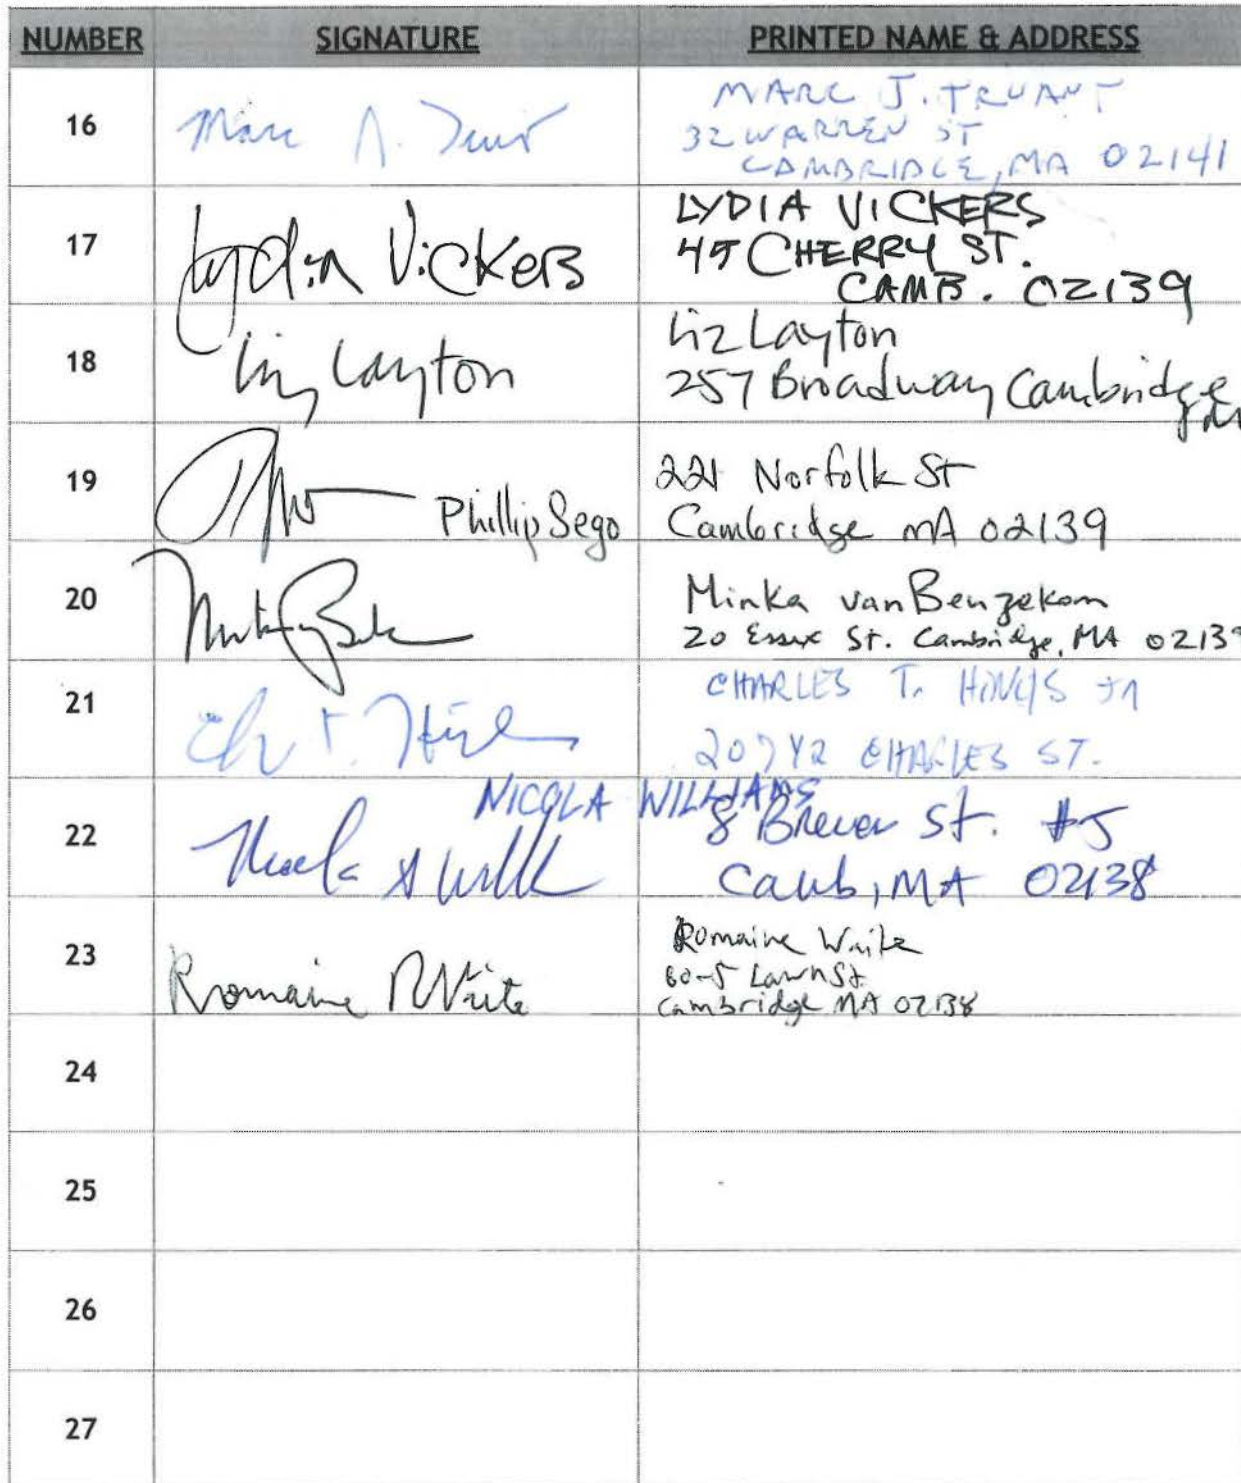 NUMBER SIGNATURE PRINTED NAME & ADDRESS
16 Marc J. MARC J. TRUANT
32 WARREN ST
CAMBRIDGE, MA 02141
17 Lydia Vickers LYDIA VICKERS
45 CHERRY ST.
CAMB. 02139
18 Liz Layton Liz Layton
257 Broadway Cambridge
19 Phillip Sego 221 Norfolk St
Cambridge MA 02139
20 Minka vanBeuzekom
20 Essex St. Cambridge, MA 02139
21 CHARLES T. JR
CHARLES ST.
NICOLA WILLIAMS
22 8 Brewer St. #5
Camb, MA 02138
23 Romaine Waite Romaine Waite
Lawn St
Cambridge MA 02138
24
25
26
27